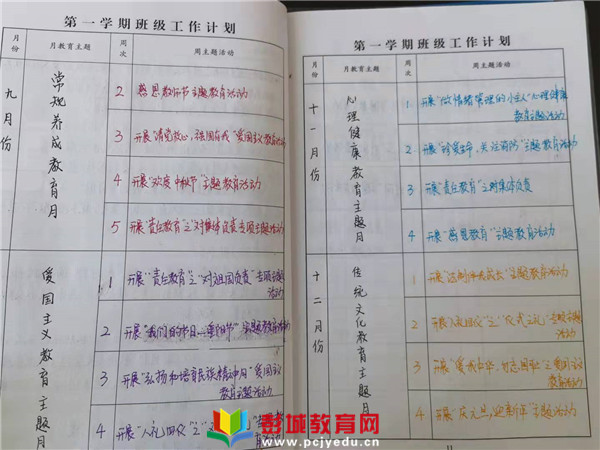 第一学期班级工作计划
月份 月教育主题 周次 周主题活动
九月份
常规养成教育月
2 感恩教师节主题教育活动
3 开展"请党放心,强国有我"爱国主义教育活动
4 开展"欢度中秋节"主题教育活动
5 开展"责任教育"之"对集体负责"主题教育活动
爱国主义教育主题月
1 开展"责任教育"之"对祖国负责"主题
活动
2 开展"我们的节日—重阳节"主题教育活动
3 开展"弘扬和培育民族精神月"爱国主义
教育主题活动
4 开展"入礼四仪"之
第一学期班级工作计划
月份 月教育主题 周次 周主题活动
十一月份
心理健康教育主题月
1 开展"做情绪管理的小主人"心理健康
教育主题活动
2 开展"珍爱生命,关注消防"主题教育活动
3 开展"责任教育"之对集体负责
4 开展"感恩教育"主题教育活动
十二月份
传统文化教育主题月
1 开展"法制伴我成长"主题教育活动
2 开展"入礼四仪"之"仪式之礼"主题
活动
3 开展"爱我中华,
教育活动
4 开展"庆元旦,迎新年"主题活动
彭城教育网
www.pcjyedu.cn